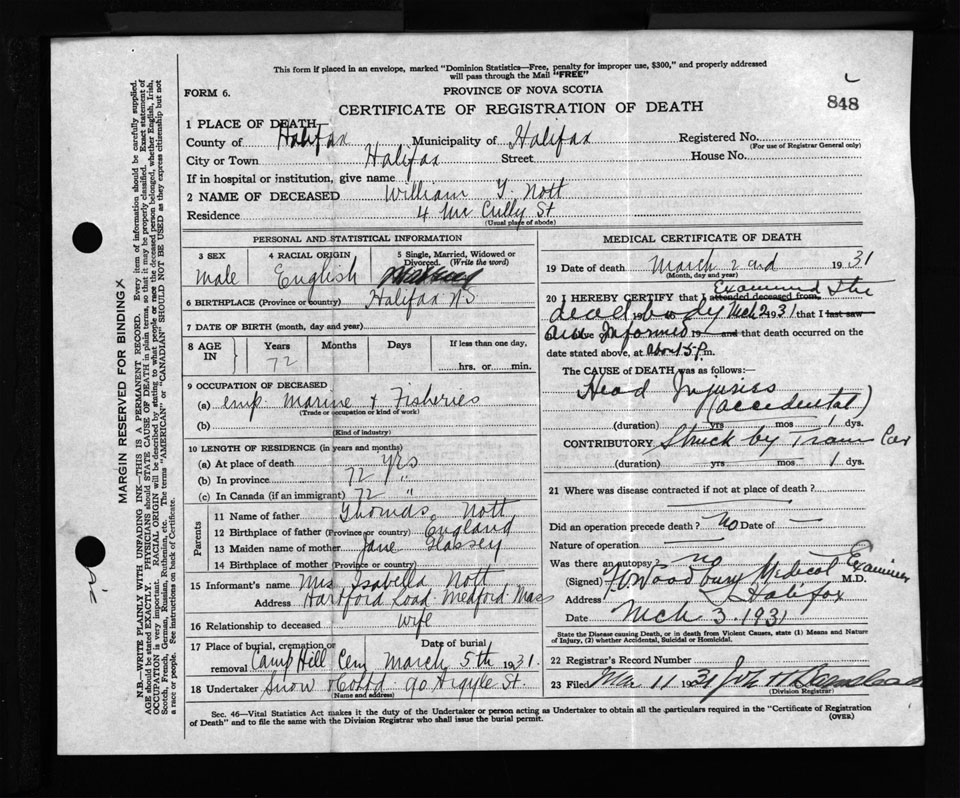 This form if placed in an envelope, marked "Dominion Statistics—Free, penalty for improper use, $300," and properly addressed
will pass through the Mail "FREE"
FORM 6.
PROVINCE OF NOVA SCOTIA
848
CERTIFICATE OF REGISTRATION OF DEATH
1 PLACE OF DEATH—
County of Halifax Municipality of Halifax Registered No.
(For use of Registrar General only)
City or Town Halifax Street House No.
If in hospital or institution, give name
2 NAME OF DECEASED William Y. Nott
Residence 4 Mc Cully St
(Usual place of abode)
PERSONAL AND STATISTICAL INFORMATION
3 SEX 4 RACIAL ORIGIN 5 Single, Married, Widowed or
Divorced. (Write the word)
Male English
6 BIRTHPLACE (Province or country) Halifax NS
7 DATE OF BIRTH (month, day and year)
8 AGE IN Years Months Days If less than one day,
72 hrs. or min.
9 OCCUPATION OF DECEASED
(a) emp. Marine & Fisheries
(Trade or occupation or kind of work)
(b)
(Kind of industry)
10 LENGTH OF RESIDENCE (in years and months)
(a) At place of death 72 yrs
(b) In province "
(c) In Canada (if an immigrant) 72 "
Parents
11 Name of father Thomas Nott
12 Birthplace of father (Province or country) England
13 Maiden name of mother Jane Glassey
14 Birthplace of mother (Province or country)
15 Informant's name Mrs Isabella Nott
Address Hartford Road Medford Mass
16 Relationship to deceased wife
17 Place of burial, cremation or removal Date of burial
Camp Hill Cem March 5th 1931.
18 Undertaker Snow & Co Ltd. 90 Argyle St.
(Name and address)
MEDICAL CERTIFICATE OF DEATH
19 Date of death March 2nd 1931
(Month, day and year)
20 I HEREBY CERTIFY that I attended deceased from Examined the
dead body Mch 2 1931 that I last saw
Informed and that death occurred on
date stated above, at m.
The CAUSE of DEATH was as follows:—
Head Injuries
(accidental)
(duration) yrs mos 1 dys.
CONTRIBUTORY Struck by Tram Car
(duration) yrs mos 1 dys.
21 Where was disease contracted if not at place of death?
Did an operation precede death? No Date of —
Nature of operation
Was there an autopsy? no
(Signed) Woodbury Medical Examiner M.D.
Address Halifax
Date Mch 3. 1931
State the Disease causing Death, or in death from Violent Causes, state (1) Means and Nature
of Injury, (2) whether Accidental, Suicidal or Homicidal.
22 Registrar's Record Number
23 Filed Mar 11 1931
(Division Registrar)
Sec. 46—Vital Statistics Act makes it the duty of the Undertaker or person acting as Undertaker to obtain all the particulars required in the "Certificate of Registration
of Death" and to file the same with the Division Registrar who shall issue the burial permit.
(OVER)
MARGIN RESERVED FOR BINDING
N.B.—WRITE PLAINLY WITH UNFADING INK—THIS IS A PERMANENT RECORD. Every item of information should be carefully supplied.
AGE should be stated EXACTLY. PHYSICIANS should STATE CAUSE OF DEATH in plain terms, so that it may be properly classified. Exact statement of
OCCUPATION is very important. RACIAL ORIGIN will be described by stating to what people or race the deceased person belonged, whether English, Irish,
Scotch, French, German, Russian, Ruthenian, etc. The terms "AMERICAN" or "CANADIAN" SHOULD NOT BE USED as they express citizenship but not
a race or people. See instructions on back of Certificate.